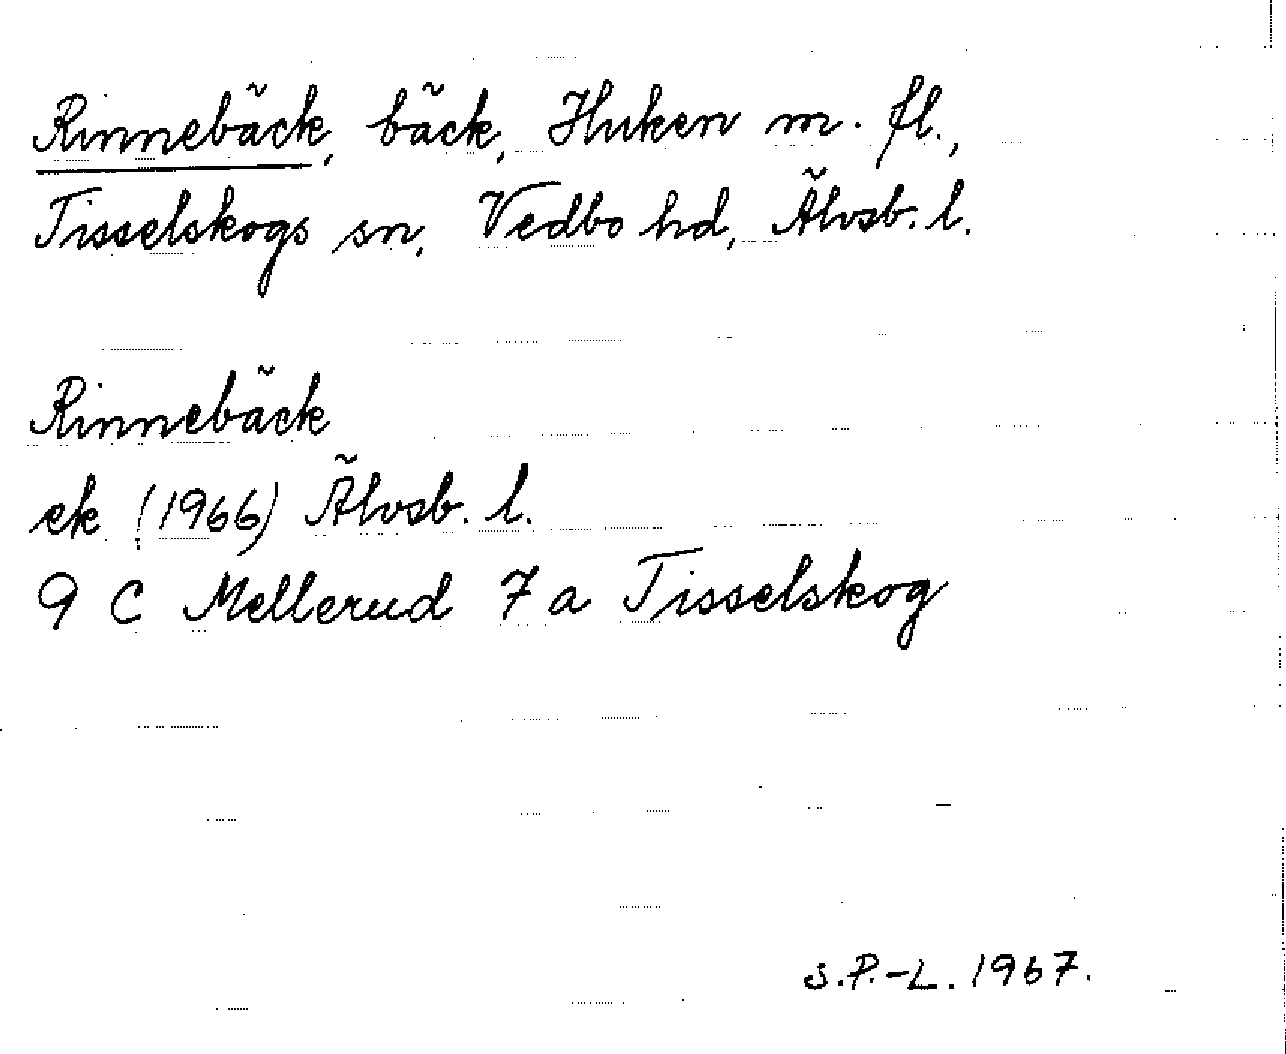 Rinnebäck, bäck, Huken m. fl.,
Tisselskogs sn, Vedbo hd, Älvsb. l.
Rinnebäck
ek (1966) Älvsb. l.
9 C Mellerud 7 a Tisselskog
S.P.-L. 1967.